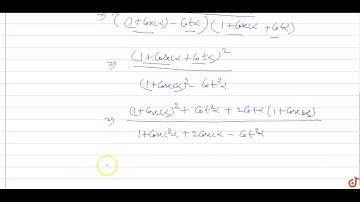 ⇒ ((1+Cosecα) − Cotα) (1+Cosecα + Cotα)
⇒ (1+Cosecα + Cotα)²
(1+Cosecα)² − Cot²α
⇒ (1+Cosecα)² + Cot²α + 2Cotα (1+Cosecα)
1+Cosec²α + 2Cosecα − Cot²α